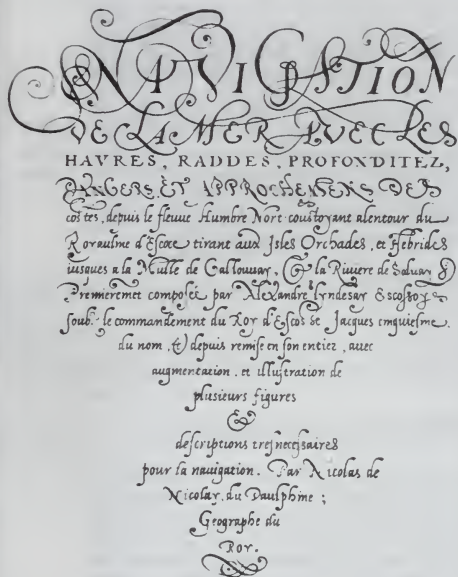 NAVIGATION
DE LA MER AVEC LES
HAVRES, RADDES, PROFONDITEZ,
DANGERS, ET APPROCHEMENS DES
costes, depuis le fleuue Humbre Nort coustoyant alentour du
Royaulme d'Escoce tirant aux Isles Orchades, et Hebrides
iusques a la Mulle de Gallouuay, & la Riuiere de Soluay &
Premieremet composée par Alexandre lyndesay Escossoys
soubz le commandement du Roy d'Escosse Jacques cinquiesme.
du nom, & depuis remise en son entier, auec
augmentation, et illustration de
plusieurs figures
&
descriptions tresnecessaires
pour la nauigation. Par Nicolas de
Nicolay, du Daulphine ;
Geographe du
Roy.